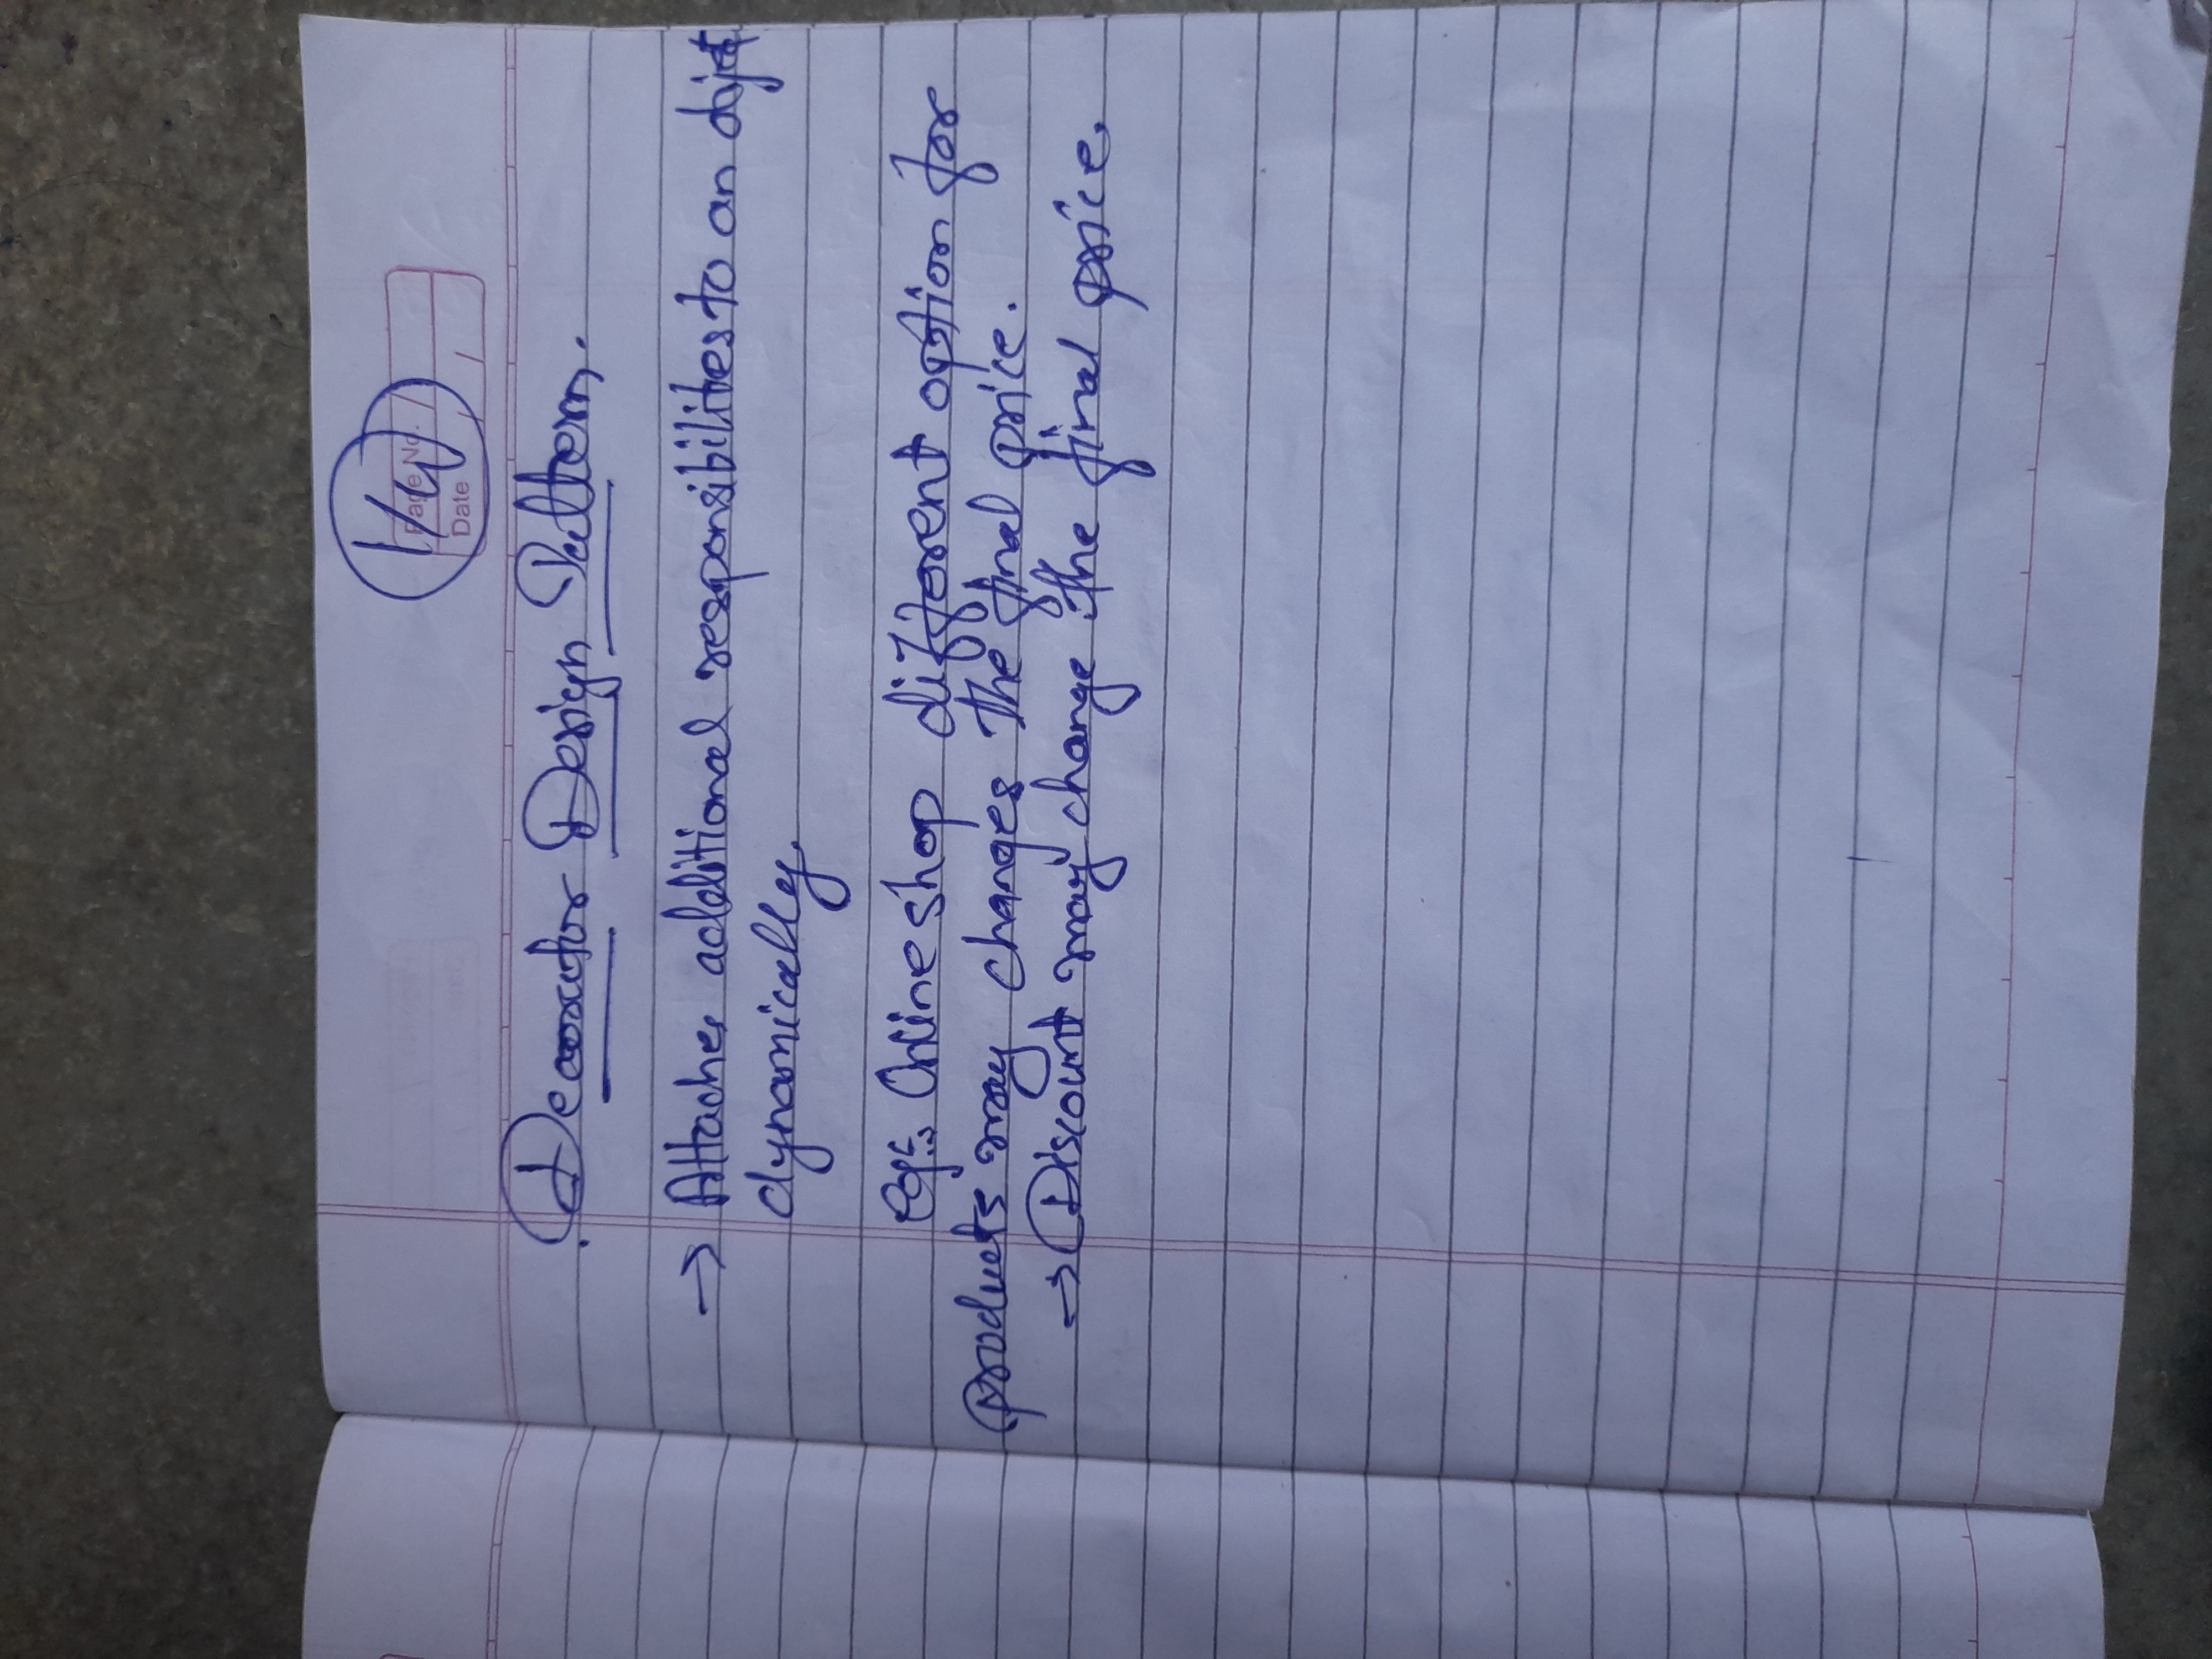 H/W
Page No.
Date
Decorator Design Pattern.
→ Attaches additional responsibilites to an object
dynamically.
eg:- Online shop different option for
products may changes the final price.
→ Discount may change the final price.